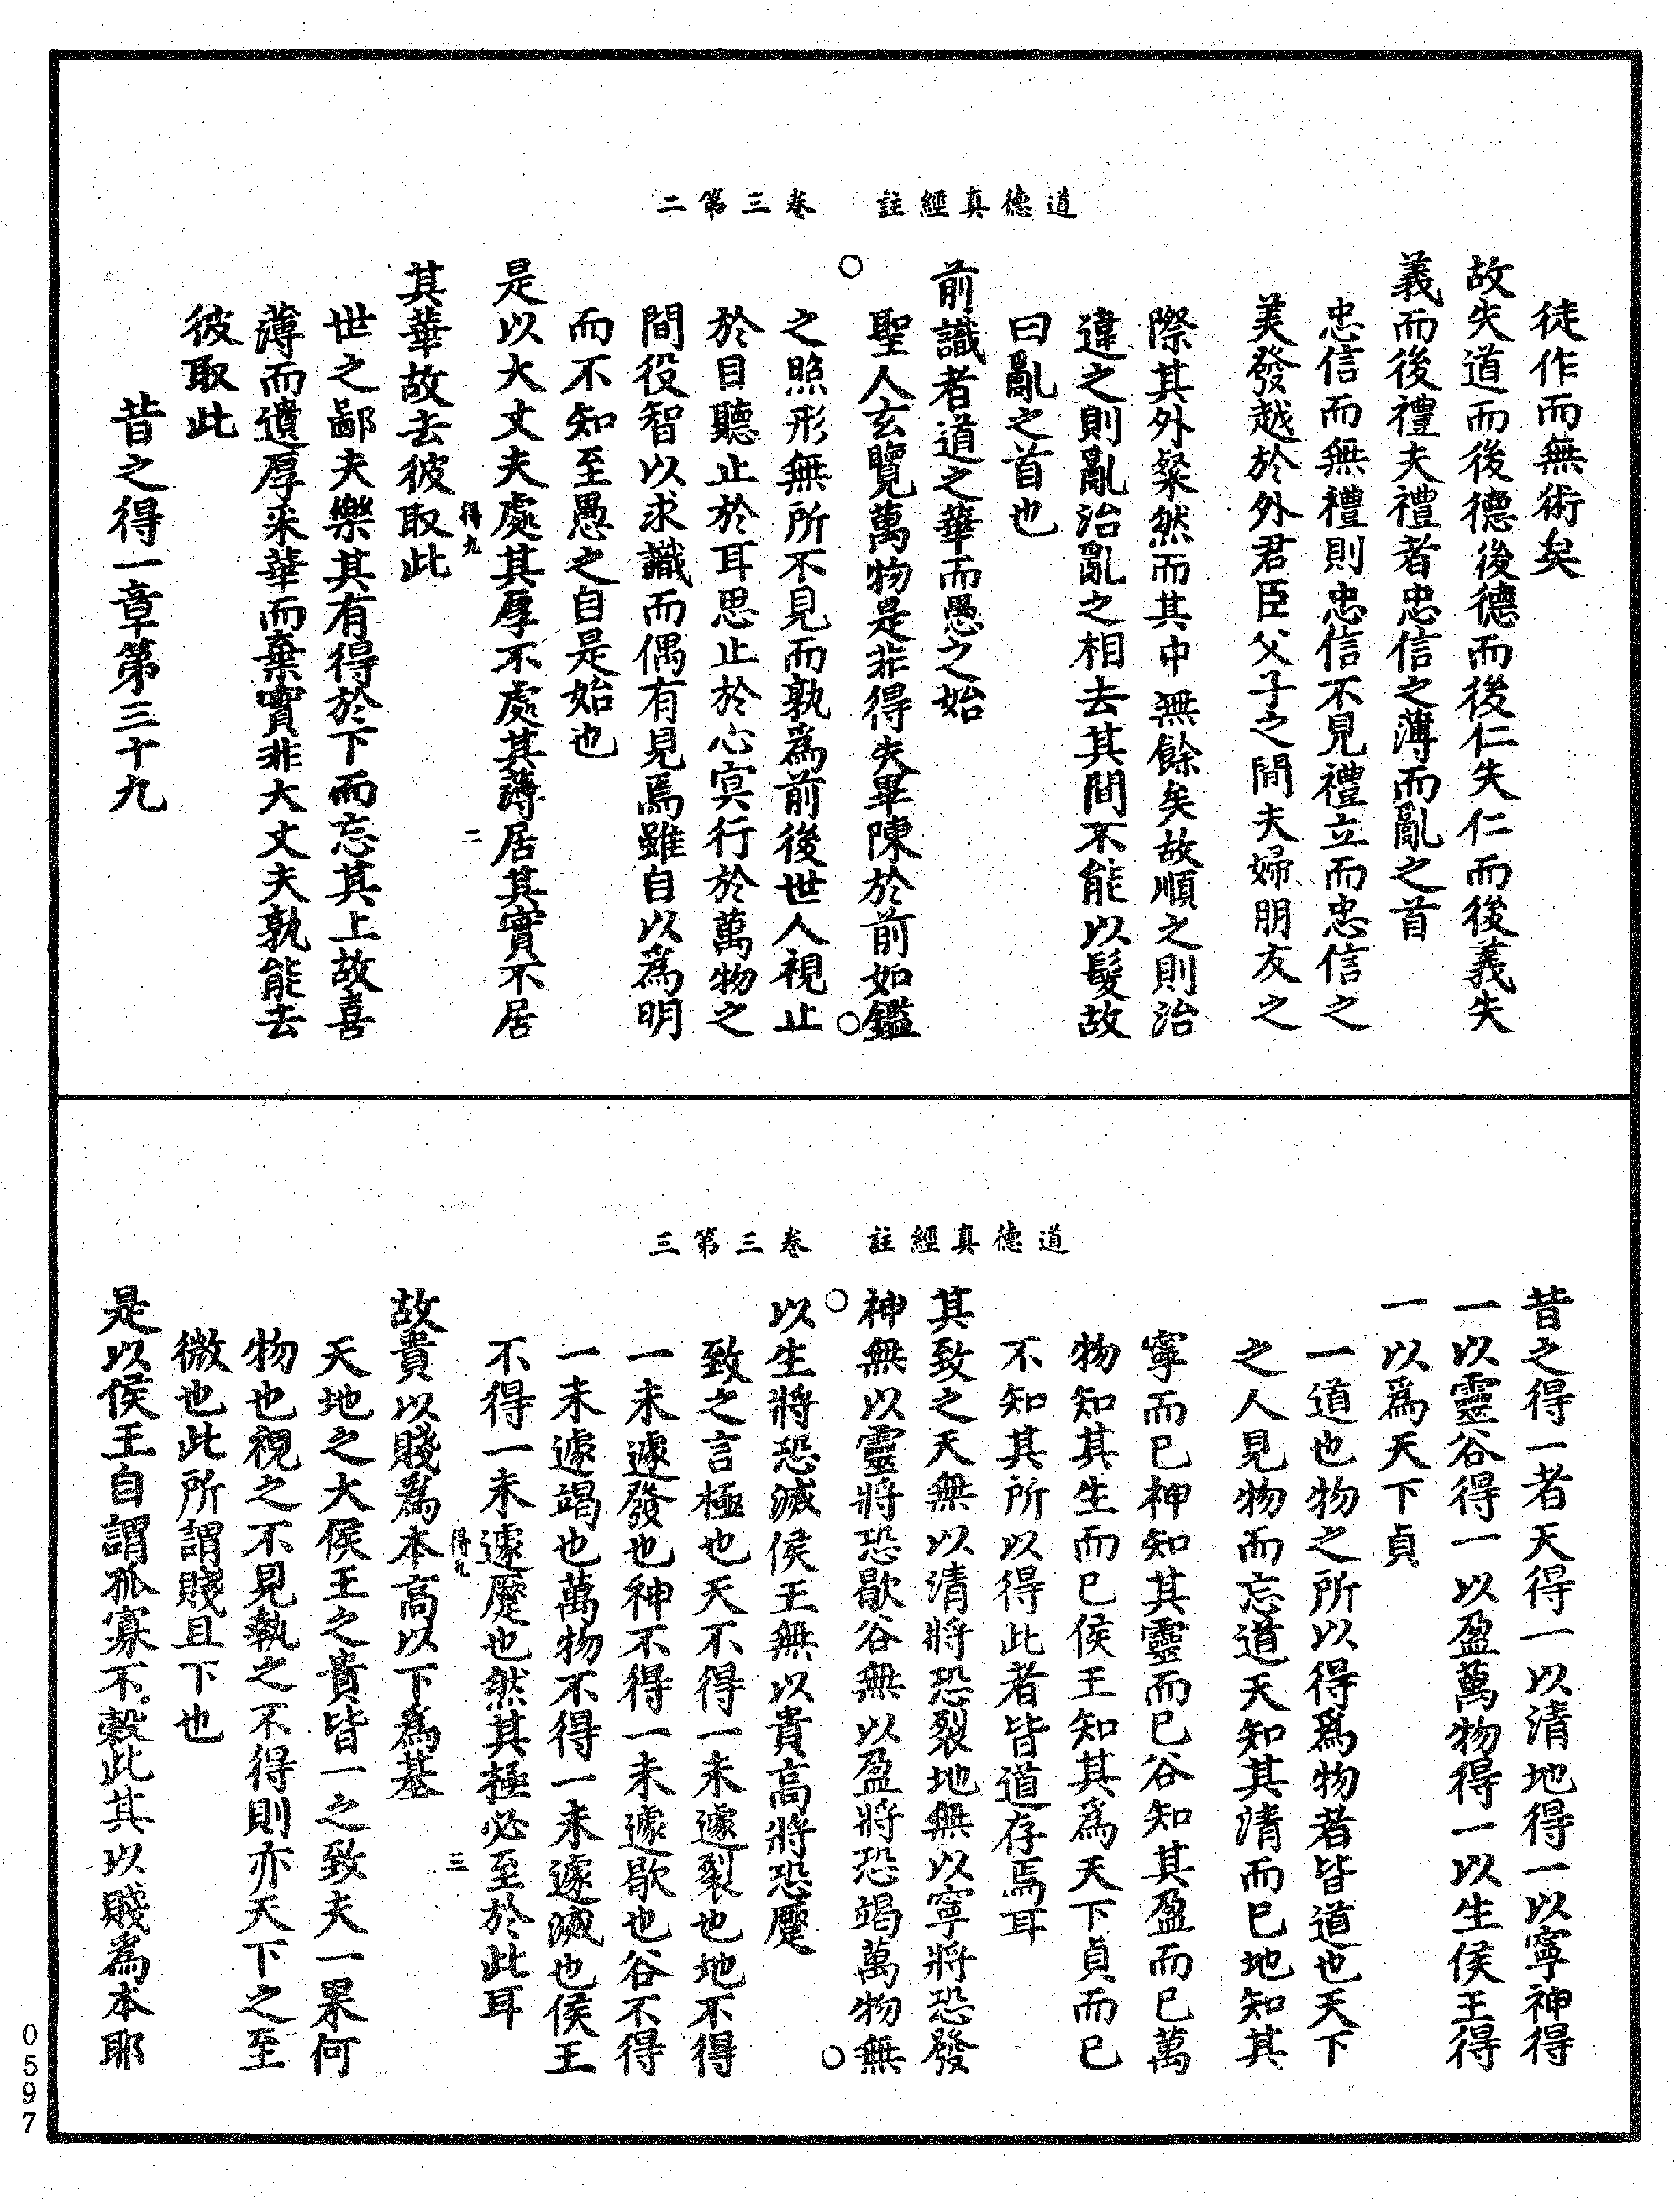 道德真經註 卷三第二
徒作而無術矣
故失道而後德後德而後仁失仁而後義失
義而後禮夫禮者忠信之薄而亂之首
忠信而無禮則忠信不見禮立而忠信之
美發越於外君臣父子之間夫婦朋友之
際其外粲然而其中無餘矣故順之則治
違之則亂治亂之相去其間不能以髮故
曰亂之首也
前識者道之華而愚之始
聖人玄覽萬物是非得失畢陳於前如鑑
之照形無所不見而孰為前後世人視止
於目聽止於耳思止於心冥行於萬物之
間役智以求識而偶有見焉雖自以為明
而不知至愚之自是始也
是以大丈夫處其厚不處其薄居其實不居
得九 二
其華故去彼取此
世之鄙夫樂其有得於下而忘其上故喜
薄而遺厚采華而棄實非大丈夫孰能去
彼取此
昔之得一章第三十九
道德真經註 卷三第三
昔之得一者天得一以清地得一以寧神得
一以靈谷得一以盈萬物得一以生侯王得
一以為天下貞
一道也物之所以得為物者皆道也天下
之人見物而忘道天知其清而已地知其
寧而已神知其靈而已谷知其盈而已萬
物知其生而已侯王知其為天下貞而已
不知其所以得此者皆道存焉耳
其致之天無以清將恐裂地無以寧將恐發
神無以靈將恐歇谷無以盈將恐竭萬物無
以生將恐滅侯王無以貴高將恐蹷
致之言極也天不得一未遽裂也地不得
一未遽發也神不得一未遽歇也谷不得
一未遽竭也萬物不得一未遽滅也侯王
不得一未遽蹷也然其極必至於此耳
得九 三
故貴以賤為本高以下為基
天地之大侯王之貴皆一之致夫一果何
物也視之不見執之不得則亦天下之至
微也此所謂賤且下也
是以侯王自謂孤寡不穀此其以賤為本耶
0597